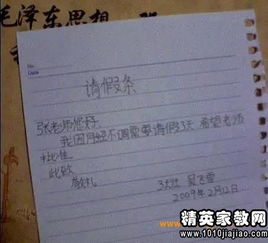 毛泽东思想
No.
Date
请假条
张老师您好
我因月经不调需要请假3天 希望老师
批准
此致
敬礼
2009年2月12日
精英家教网
www.1010jiajiao.com